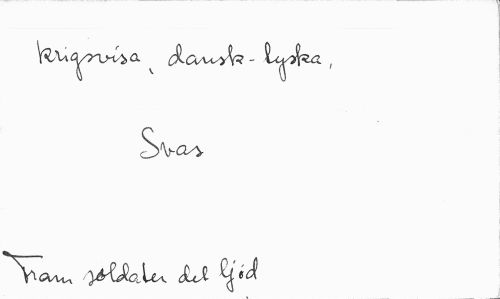 Krigsvisa, dansk-tyska,
Svas
Fram soldater det ljöd